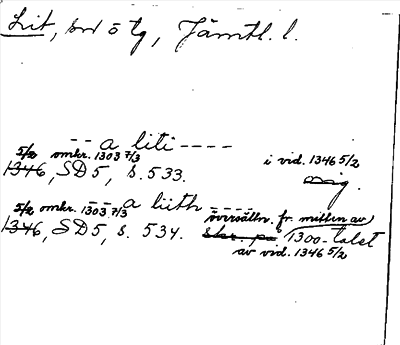 Lit, sn o tg, Jämtl. l.
-- a liti ----
5/2 omkr. 1303 7/3 i vid. 1346 5/2
1346, SD 5, s. 533. orig.
-- a liith ----
5/2 omkr. 1303 7/3 översättn. fr. mitten av
1346, SD 5, s. 534. skr. på 1300-talet
av vid. 1346 5/2